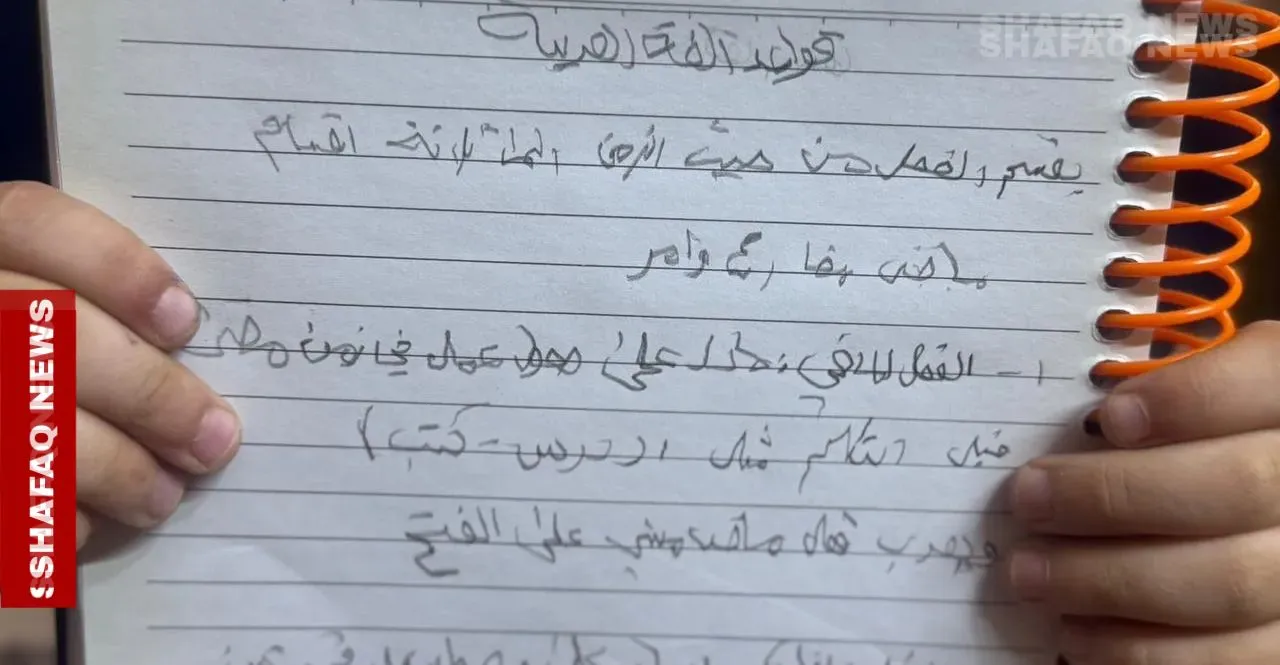 SHAFAQ NEWS
SHAFAQ NEWS
قواعد اللغة العربية
يقسم الفعل من حيث الزمن الى ثلاثة اقسام
ماضي مضارع وأمر
١- الفعل الماضي: يدل على حصول عمل في زمن مضى
قبل التكلم مثل (درس - كتب)
ويعرب فعل ماضي مبني على الفتح
SSHAFAQ NEWS